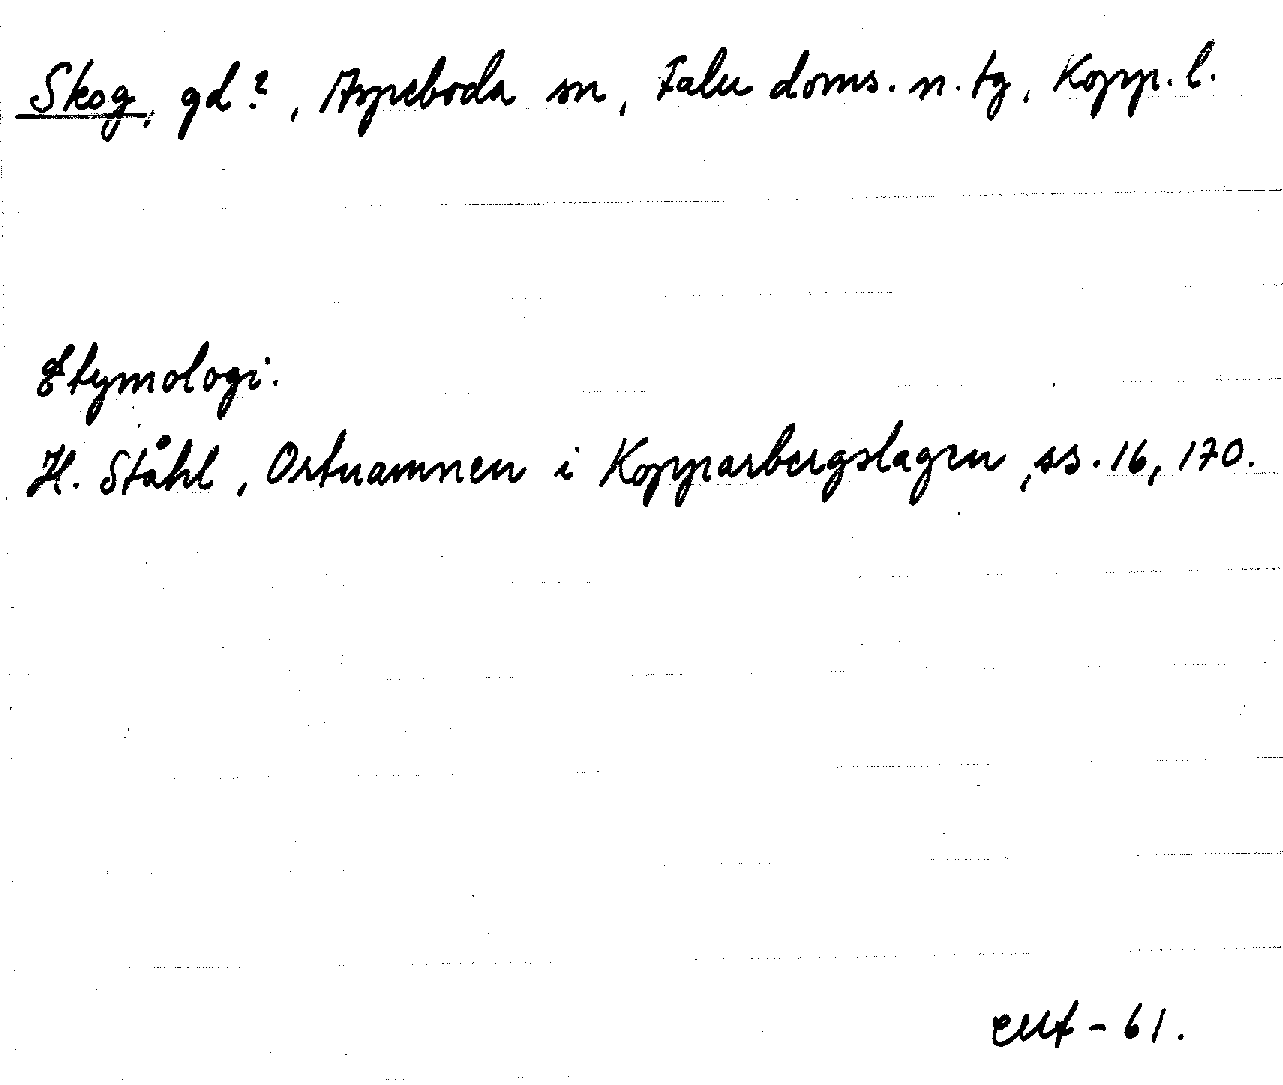 Skog, gd?, Aspeboda sn, Falu doms. n. tg, Kopp. l.
Etymologi.
H. Ståhl, Ortnamnen i Kopparbergslagen, ss. 16, 170.
-61.